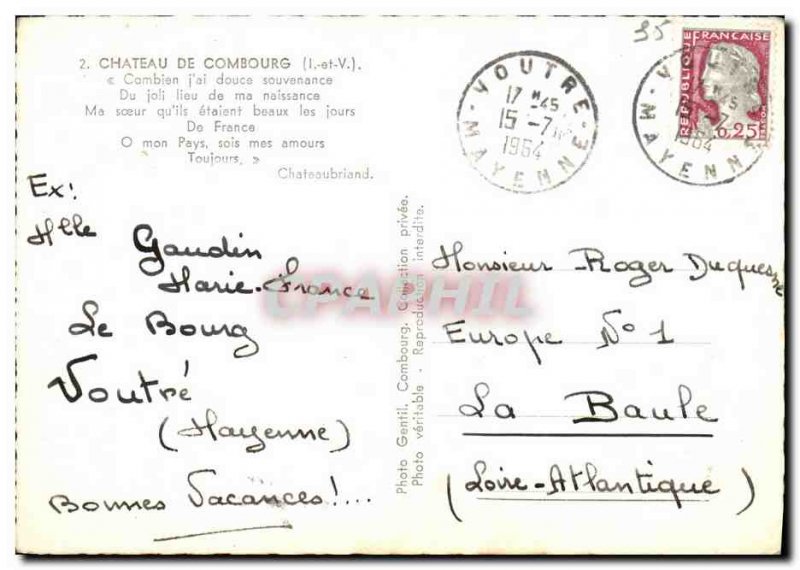 2. CHATEAU DE COMBOURG (I.-et-V.).
« Combien j'ai douce souvenance
Du joli lieu de ma naissance
Ma sœur qu'ils étaient beaux les jours
De France
O mon Pays, sois mes amours
Toujours, »
Chateaubriand.
VOUTRE
17 H 45
15 -7
1964
MAYENNE
35
REPUBLIQUE FRANÇAISE
0,25
MAYENNE
1964
Ex:
Mlle Gaudin
Marie-France
Le Bourg
Voutré
(Mayenne)
Bonnes Vacances!...
Photo Gentil, Combourg. Collection privée.
Photo véritable - Reproduction interdite.
Monsieur Roger Duquesne
Europe N° 1
La Baule
(Loire-Atlantique)
CPAPHIL